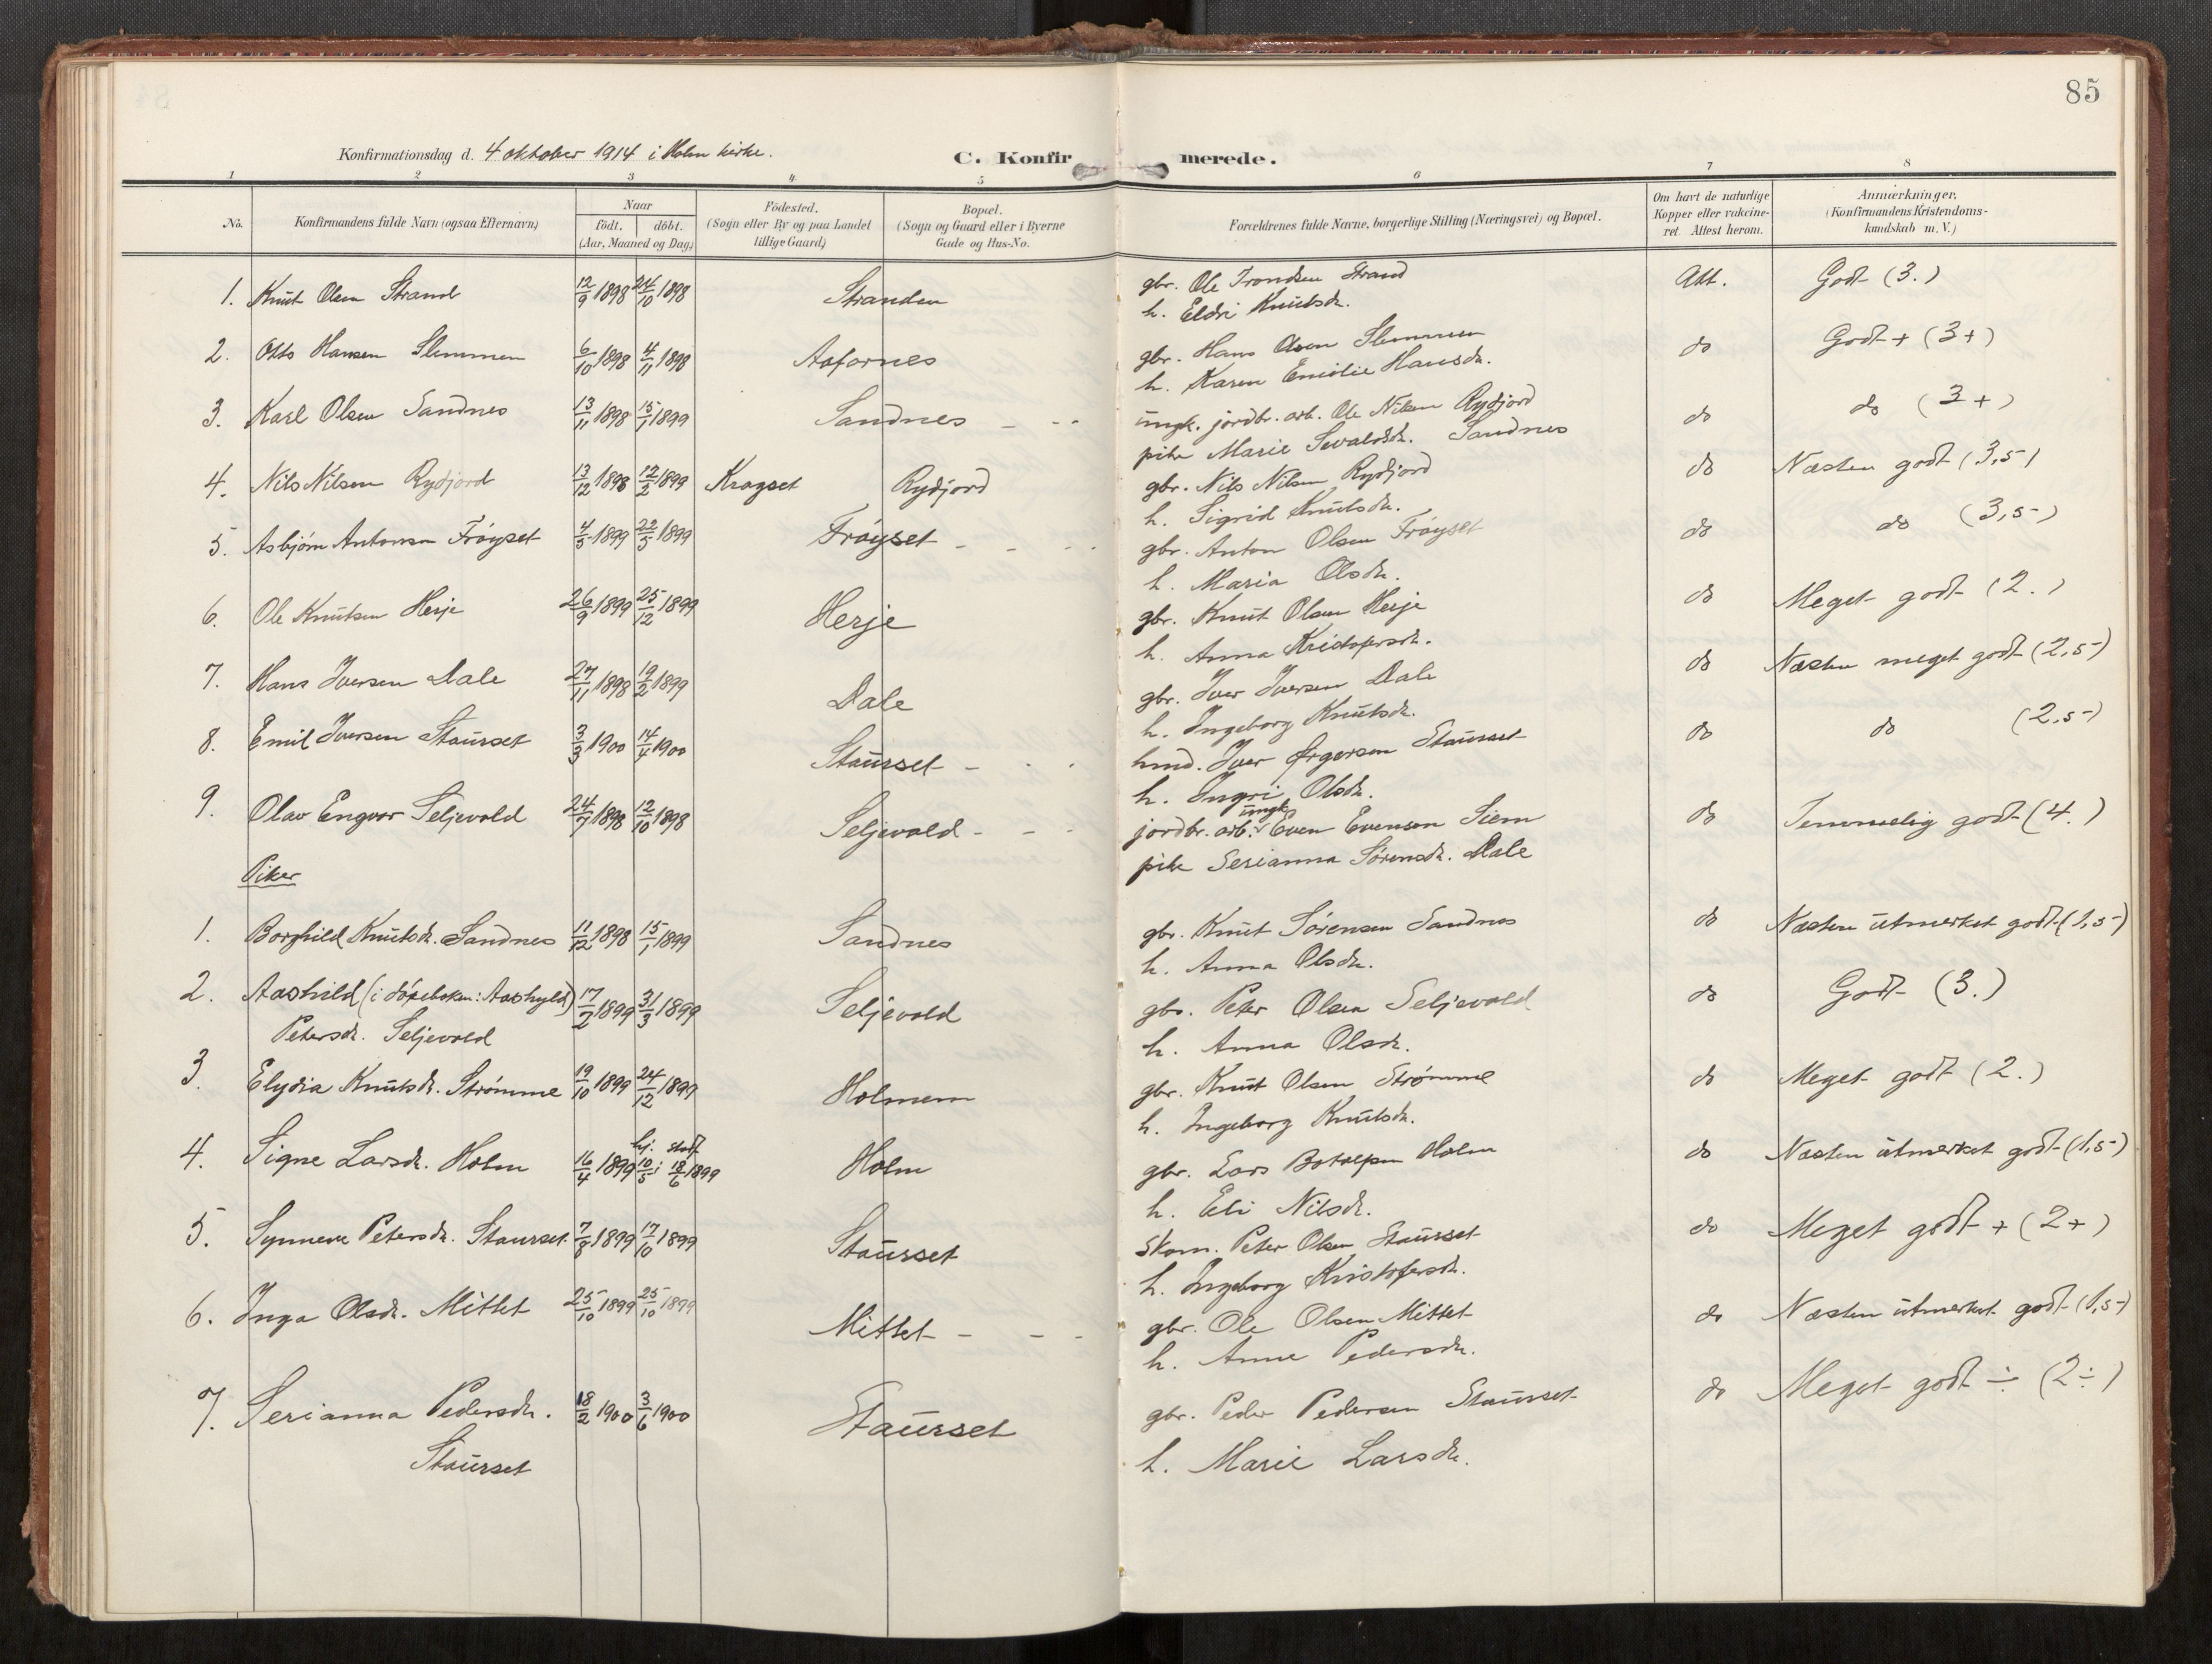 85
Konfirmationsdag d. 4 oktober 1914 i Holm kirke.
C. Konfirmerede.
1 2 3 4 5 6 7 8
No. Konfirmandens fulde Navn (ogsaa Efternavn) Naar født. døbt. (Aar, Maaned og Dag.) Fødested. (Sogn eller By og paa Landet tillige Gaard) Bopæl. (Sogn og Gaard eller i Byerne Gade og Hus-No. Forældrenes fulde Navne, borgerlige Stilling (Næringsvei) og Bopæl. Om havt de naturlige Kopper eller vakcineret. Attest herom. Anmærkninger. (Konfirmandens Kristendomskundskab m. V.)
1. Knut Olsen Strand 12/9 1898 24/10 1898 Stranden gbr. Ole Trondsen Strand Att. Godt (3.)
h. Eldri Knutsdr.
2. Otto Hansen Slemmen 6/10 1898 4/11 1898 Aafarnes gbr. Hans Olsen Slemmen do Godt + (3+)
h. Karen Emilie Hansdr.
3. Karl Olsen Sandnes 13/11 1898 15/1 1899 Sandnes - - - ungk. jordbr. arb. Ole Nilsen Rydjord do do (3+)
pike Marie Sevaldsdr. Sandnes
4. Nils Nilsen Rydjord 13/12 1898 12/2 1899 Kragset Rydjord gbr. Nils Nilsen Rydjord do Næsten godt (3,5-)
h. Sigrid Knutsdr.
5. Asbjørn Antonsen Frøyset 4/3 1899 22/5 1899 Frøyset - - - - gbr. Anton Olsen Frøyset do do (3,5-)
h. Maria Olsdr.
6. Ole Knutsen Herje 26/9 1899 25/12 1899 Herje gbr. Knut Olsen Herje do Meget godt (2.)
h. Anna Kristofersdr.
7. Hans Iversen Dale 27/11 1898 19/2 1899 Dale gbr. Iver Iversen Dale do Næsten meget godt (2,5-)
h. Ingeborg Knutsdr.
8. Emil Iversen Staurset 3/3 1900 14/4 1900 Staurset - - - hmd. Iver Ørgersen Staurset do do (2,5-)
h. Ingri Olsdr.
9. Olav Engvor Seljevold 24/7 1898 12/10 1898 Seljevold - - - jordbr. arb. ungk. Even Evensen Siem do Temmelig godt (4.)
pike Serianna Sørensdr. Dale
Piker
1. Borghild Knutsdr. Sandnes 11/12 1898 15/1 1899 Sandnes gbr. Knut Sørensen Sandnes do Næsten utmerket godt (1,5-)
h. Anna Olsdr.
2. Aashild (i døpeboken: Aashyld) 17/2 1899 31/3 1899 Seljevold gbr. Peter Olsen Seljevold do Godt (3.)
Petersdr. Seljevold h. Anna Olsdr.
3. Elydia Knutsdr. Strømme 19/10 1899 24/12 1899 Holmem gbr. Knut Olsen Strømme do Meget godt (2.)
h. Ingeborg Knutsdr.
4. Signe Larsdr. Holm 16/4 1899 hj. 10/5; stadf. 18/6 1899 Holm gbr. Lars Botolfsen Holm do Næsten utmerket godt (1,5-)
h. Eli Nilsdr.
5. Synneve Petersdr. Staurset 7/8 1899 17/10 1899 Staurset skom. Peter Olsen Staurset do Meget godt + (2+)
h. Ingeborg Kristofersdr.
6. Inga Olsdr. Mittet 25/10 1899 25/10 1899 Mittet - - - gbr. Ole Olsen Mittet do Næsten utmerket godt (1,5-)
h. Anne Pedersdr.
7. Serianna Pedersdr. 18/2 1900 3/6 1900 Staurset gbr. Peder Pedersen Staurset do Meget godt ÷ (2÷)
Staurset h. Marie Larsdr.